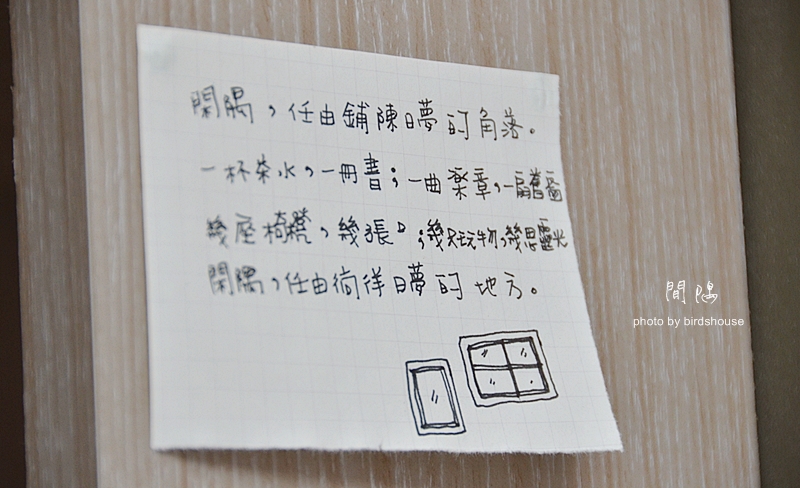 閑隅，任由鋪陳日夢的角落。
一杯茶水，一冊書；一曲楽章，一扇舊窗
幾座椅凳，幾張；幾只玩物，幾思靈光
閑隅，任由徜徉日夢的地方。
閒隅
photo by birdshouse